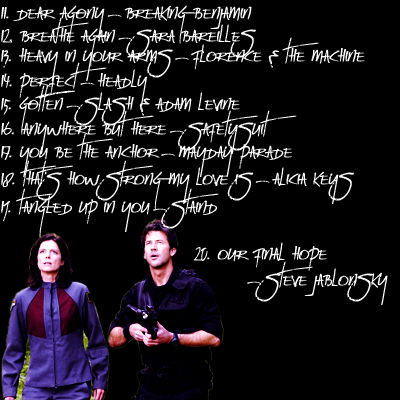 11. DEAR AGONY – BREAKING BENJAMIN
12. BREATHE AGAIN – SARA BAREILLES
13. HEAVY IN YOUR ARMS – FLORENCE & THE MACHINE
14. PERFECT – HEDLEY
15. GOTTEN – SLASH & ADAM LEVINE
16. ANYWHERE BUT HERE – SAFETYSUIT
17. YOU BE THE ANCHOR – MAYDAY PARADE
18. THAT'S HOW STRONG MY LOVE IS – ALICIA KEYS
19. TANGLED UP IN YOU – STAIND
20. OUR FINAL HOPE
– STEVE JABLONSKY